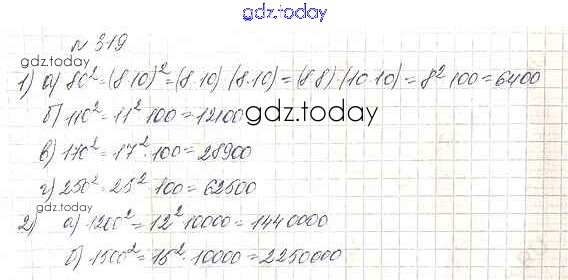 gdz.today
№ 319
gdz.today
1) а) 80² = (8·10)² = (8·10)·(8·10) = (8·8)·(10·10) = 8²·100 = 6400
б) 110² = 11²·100 = 12100
gdz.today
в) 170² = 17²·100 = 28900
г) 250² = 25²·100 = 62500
gdz.today
2) а) 1200² = 12²·10000 = 1440000
б) 1500² = 15²·10000 = 2250000